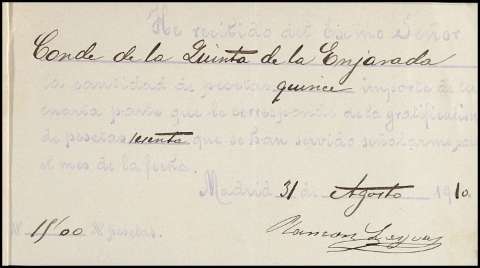 He recibido del Excmo Señor
Conde de la Quinta de la Enjarada
la cantidad de pesetas quince importe de la
cuarta parte que le corresponde de la gratificación
de pesetas sesenta que se han servido señalarme para
el mes de la fecha.
Madrid 31 de Agosto 1910.
15/00 pesetas.
Ramon